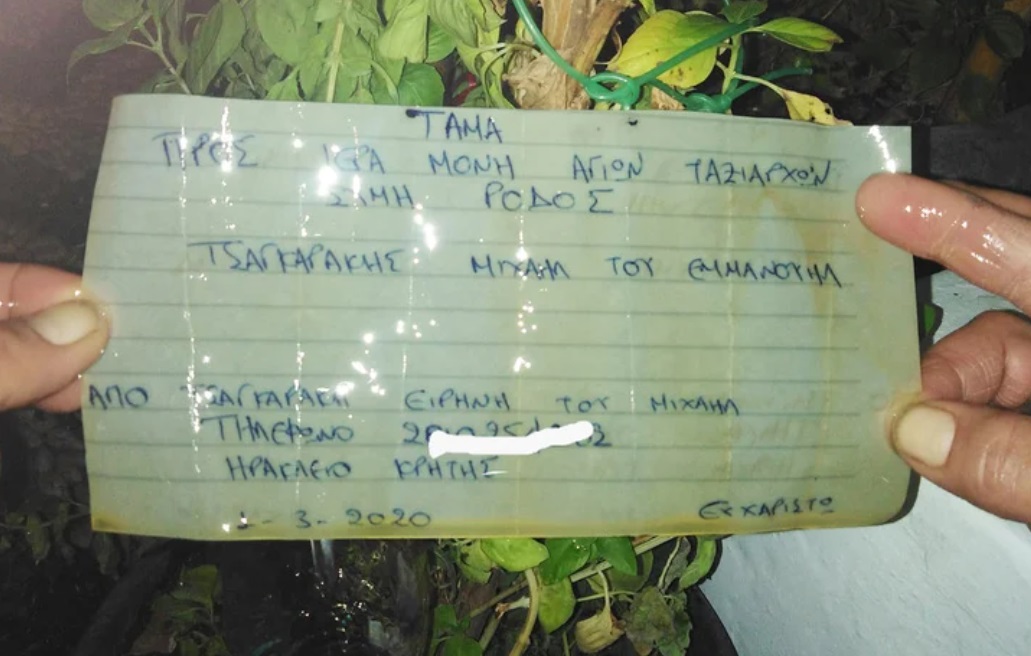 ΤΑΜΑ
ΠΡΟΣ ΙΕΡΑ ΜΟΝΗ ΑΓΙΩΝ ΤΑΞΙΑΡΧΩΝ
ΣΥΜΗ ΡΟΔΟΣ
ΤΣΑΓΚΑΡΑΚΗΣ ΜΙΧΑΗΛ ΤΟΥ ΕΜΜΑΝΟΥΗΛ
ΑΠΟ ΤΣΑΓΚΑΡΑΚΗ ΕΙΡΗΝΗ ΤΟΥ ΜΙΧΑΗΛ
ΤΗΛΕΦΩΝΟ
ΗΡΑΚΛΕΙΟ ΚΡΗΤΗΣ
1-3-2020 ΕΥΧΑΡΙΣΤΩ